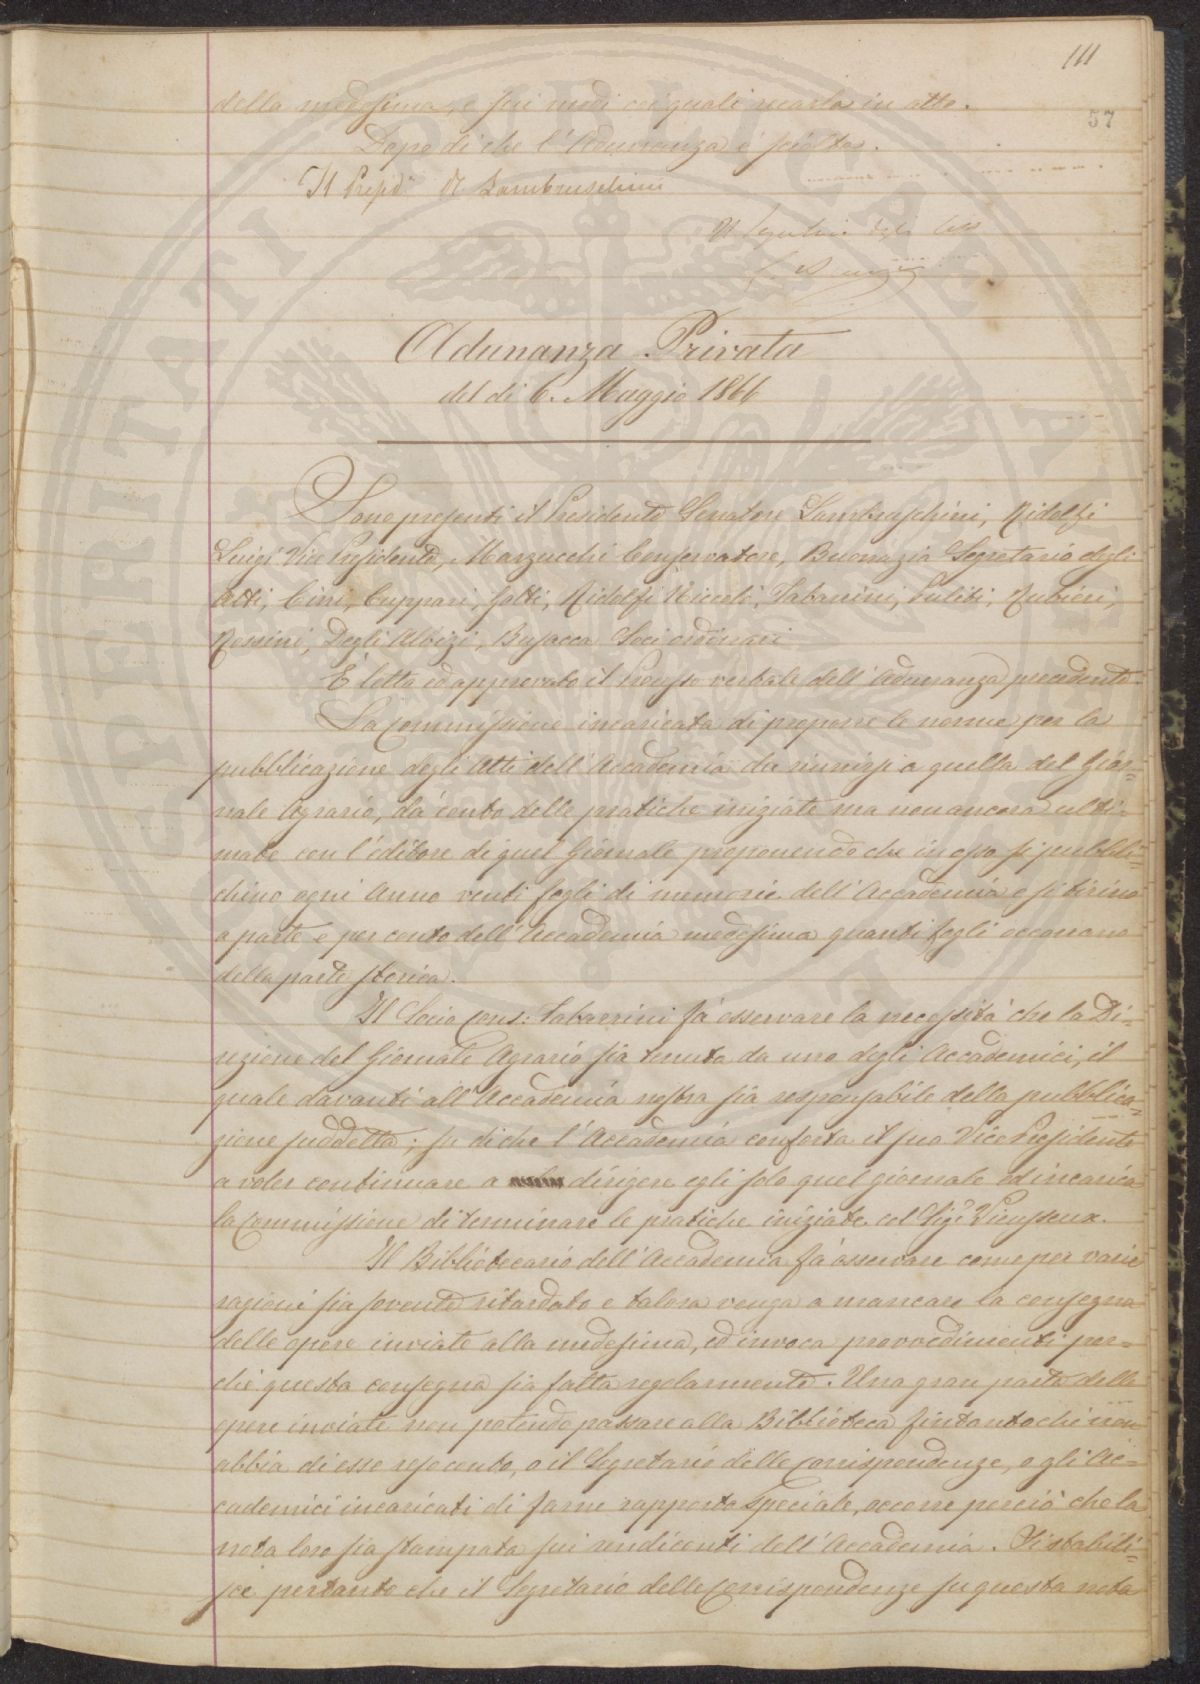 111
57
della medesima, e sui modi coi quali recarla in atto.
Dopo di che l'Adunanza è sciolta.
Il Presid. R Lambruschini
Il Segretario degli Atti
Adunanza Privata
del dì 6. Maggio 1866
Sono presenti il Presidente Senatore Lambruschini, Ridolfi
Luigi Vice Presidente, Marzucchi Conservatore, Buonazia Segretario degli
Atti, Cini, Cuppari, Galli, Ridolfi Niccolò, Tabarrini, Puliti, Rubieri,
Rossini, Degli Albizi, Busacca Soci ordinari
È letto ed approvato il Processo verbale dell'Adunanza precedente.
La Commissione incaricata di proporre le norme per la
pubblicazione degli Atti dell'Accademia da riunirsi a quella del Gior=
nale Agrario, dà conto delle pratiche iniziate ma non ancora ulti-
mate con l'editore di quel Giornale proponendo che in esso si pubbli=
chino ogni Anno venti fogli di memorie dell'Accademia e si tirino
a parte e per conto dell'Accademia medesima quanti fogli occorrano
della parte storica.
Il Socio Cons: Tabarrini fà osservare la necessità che la Di-
rezione del Giornale Agrario sia tenuta da uno degli Accademici, il
quale davanti all'Accademia nostra sia responsabile della pubblica=
zione suddetta; su di che l'Accademia conforta il suo Vice Presidente
a voler continuare a dirigere egli solo quel giornale ed incarica
la Commissione di terminare le pratiche iniziate col Sigr Vieusseux.
Il Bibliotecario dell'Accademia fà osservare come per varie
ragioni sia sovente ritardato e talora venga a mancare la consegna
delle opere inviate alla medesima, ed invoca provvedimenti per-
chè questa consegna sia fatta regolarmente. Una gran parte delle
opere inviate non potendo passare alla Biblioteca fintantochè non
abbia di esse reso conto, o il Segretario delle Corrispondenze, o gli Ac=
cademici incaricati di farne rapporto speciale, occorre perciò che la
nota loro sia stampata sui rendiconti dell'Accademia. Si stabili=
sce pertanto che il Segretario delle Corrispondenze su questa nota